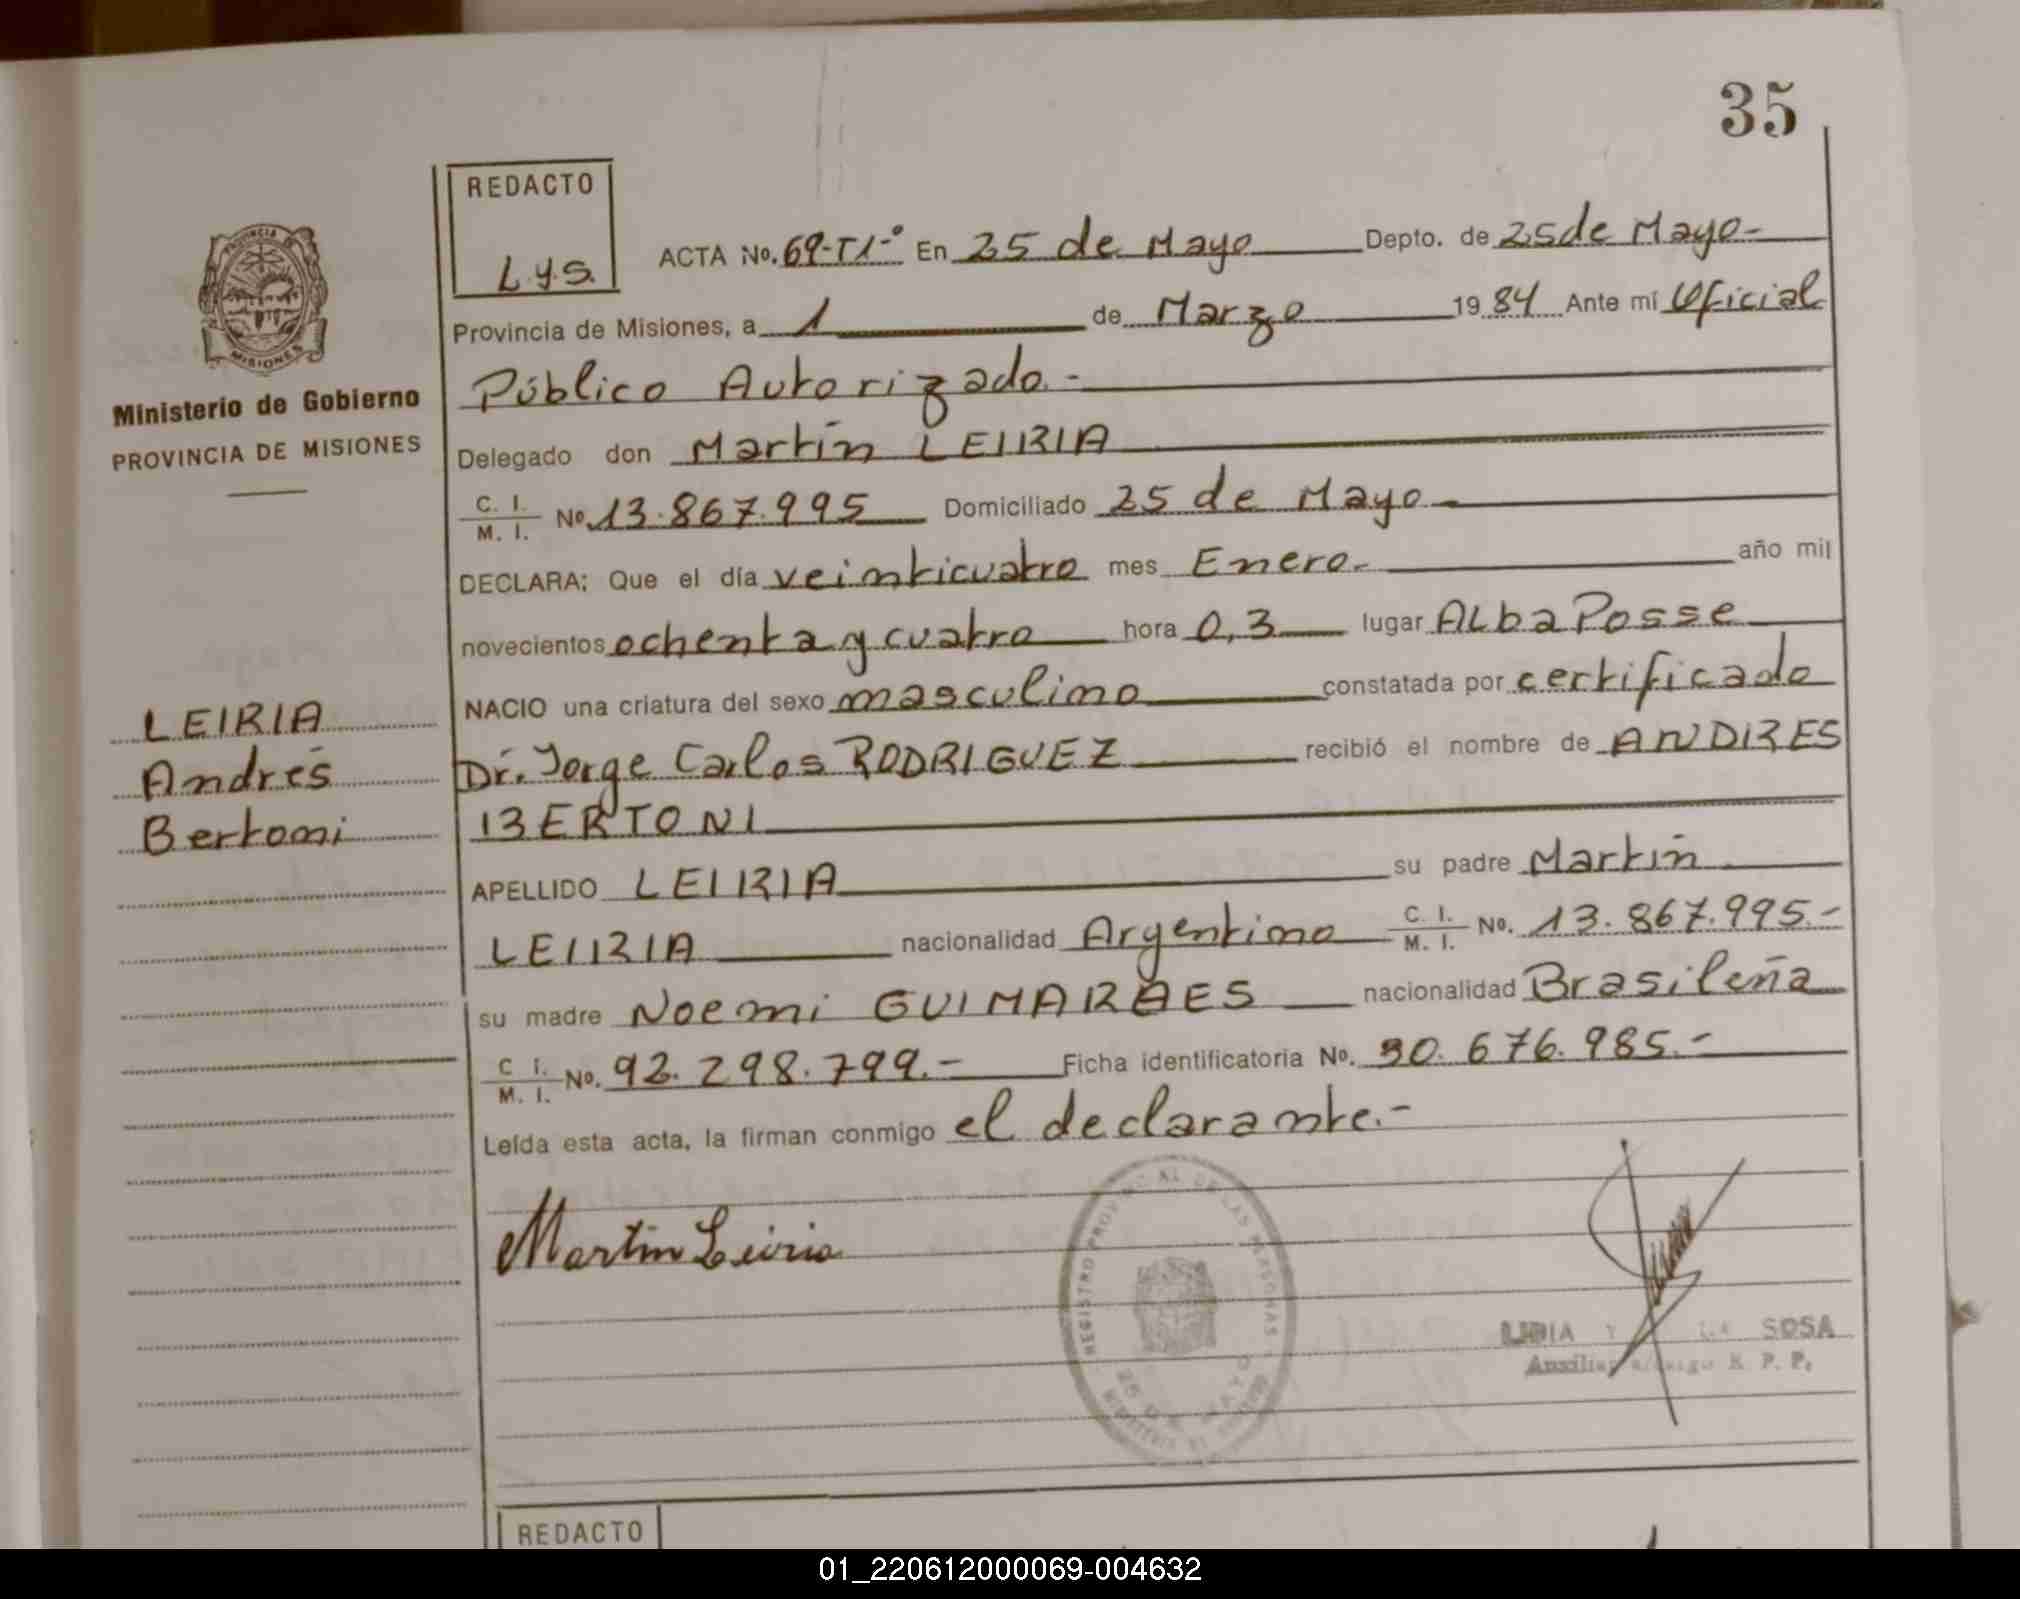 35
REDACTO
L.y.S.
ACTA No. 69-T1-º En 25 de Mayo Depto. de 25 de Mayo-
Provincia de Misiones, a 1 de Marzo 1984 Ante mí Oficial
Público Autorizado.-
Delegado don Martín LEIRIA
C. I. / M. I. No. 13.867.995 Domiciliado 25 de Mayo-
DECLARA: Que el día veinticuatro mes Enero.- año mil
novecientos ochenta y cuatro hora 0,3 lugar Alba Posse
NACIO una criatura del sexo masculino constatada por certificado
Dr. Jorge Carlos RODRIGUEZ recibió el nombre de ANDRES
BERTONI
APELLIDO LEIRIA su padre Martín
LEIRIA nacionalidad Argentino C. I. / M. I. No. 13.867.995.-
su madre Noemi GUIMARAES nacionalidad Brasileña
C I. / M. I. No. 92.298.799.- Ficha identificatoria No. 30.676.985.-
Leída esta acta, la firman conmigo el declarante.-
Martin Leiria
PROVINCIA DE
MISIONES
Ministerio de Gobierno
PROVINCIA DE MISIONES
LEIRIA
Andrés
Bertoni
REGISTRO PROVINCIAL DE LAS PERSONAS
25 DE MAYO
MINISTERIO DE GOBIERNO
LIDIA Y SOSA
Auxiliar a/cargo R. P. P.
REDACTO
01_220612000069-004632